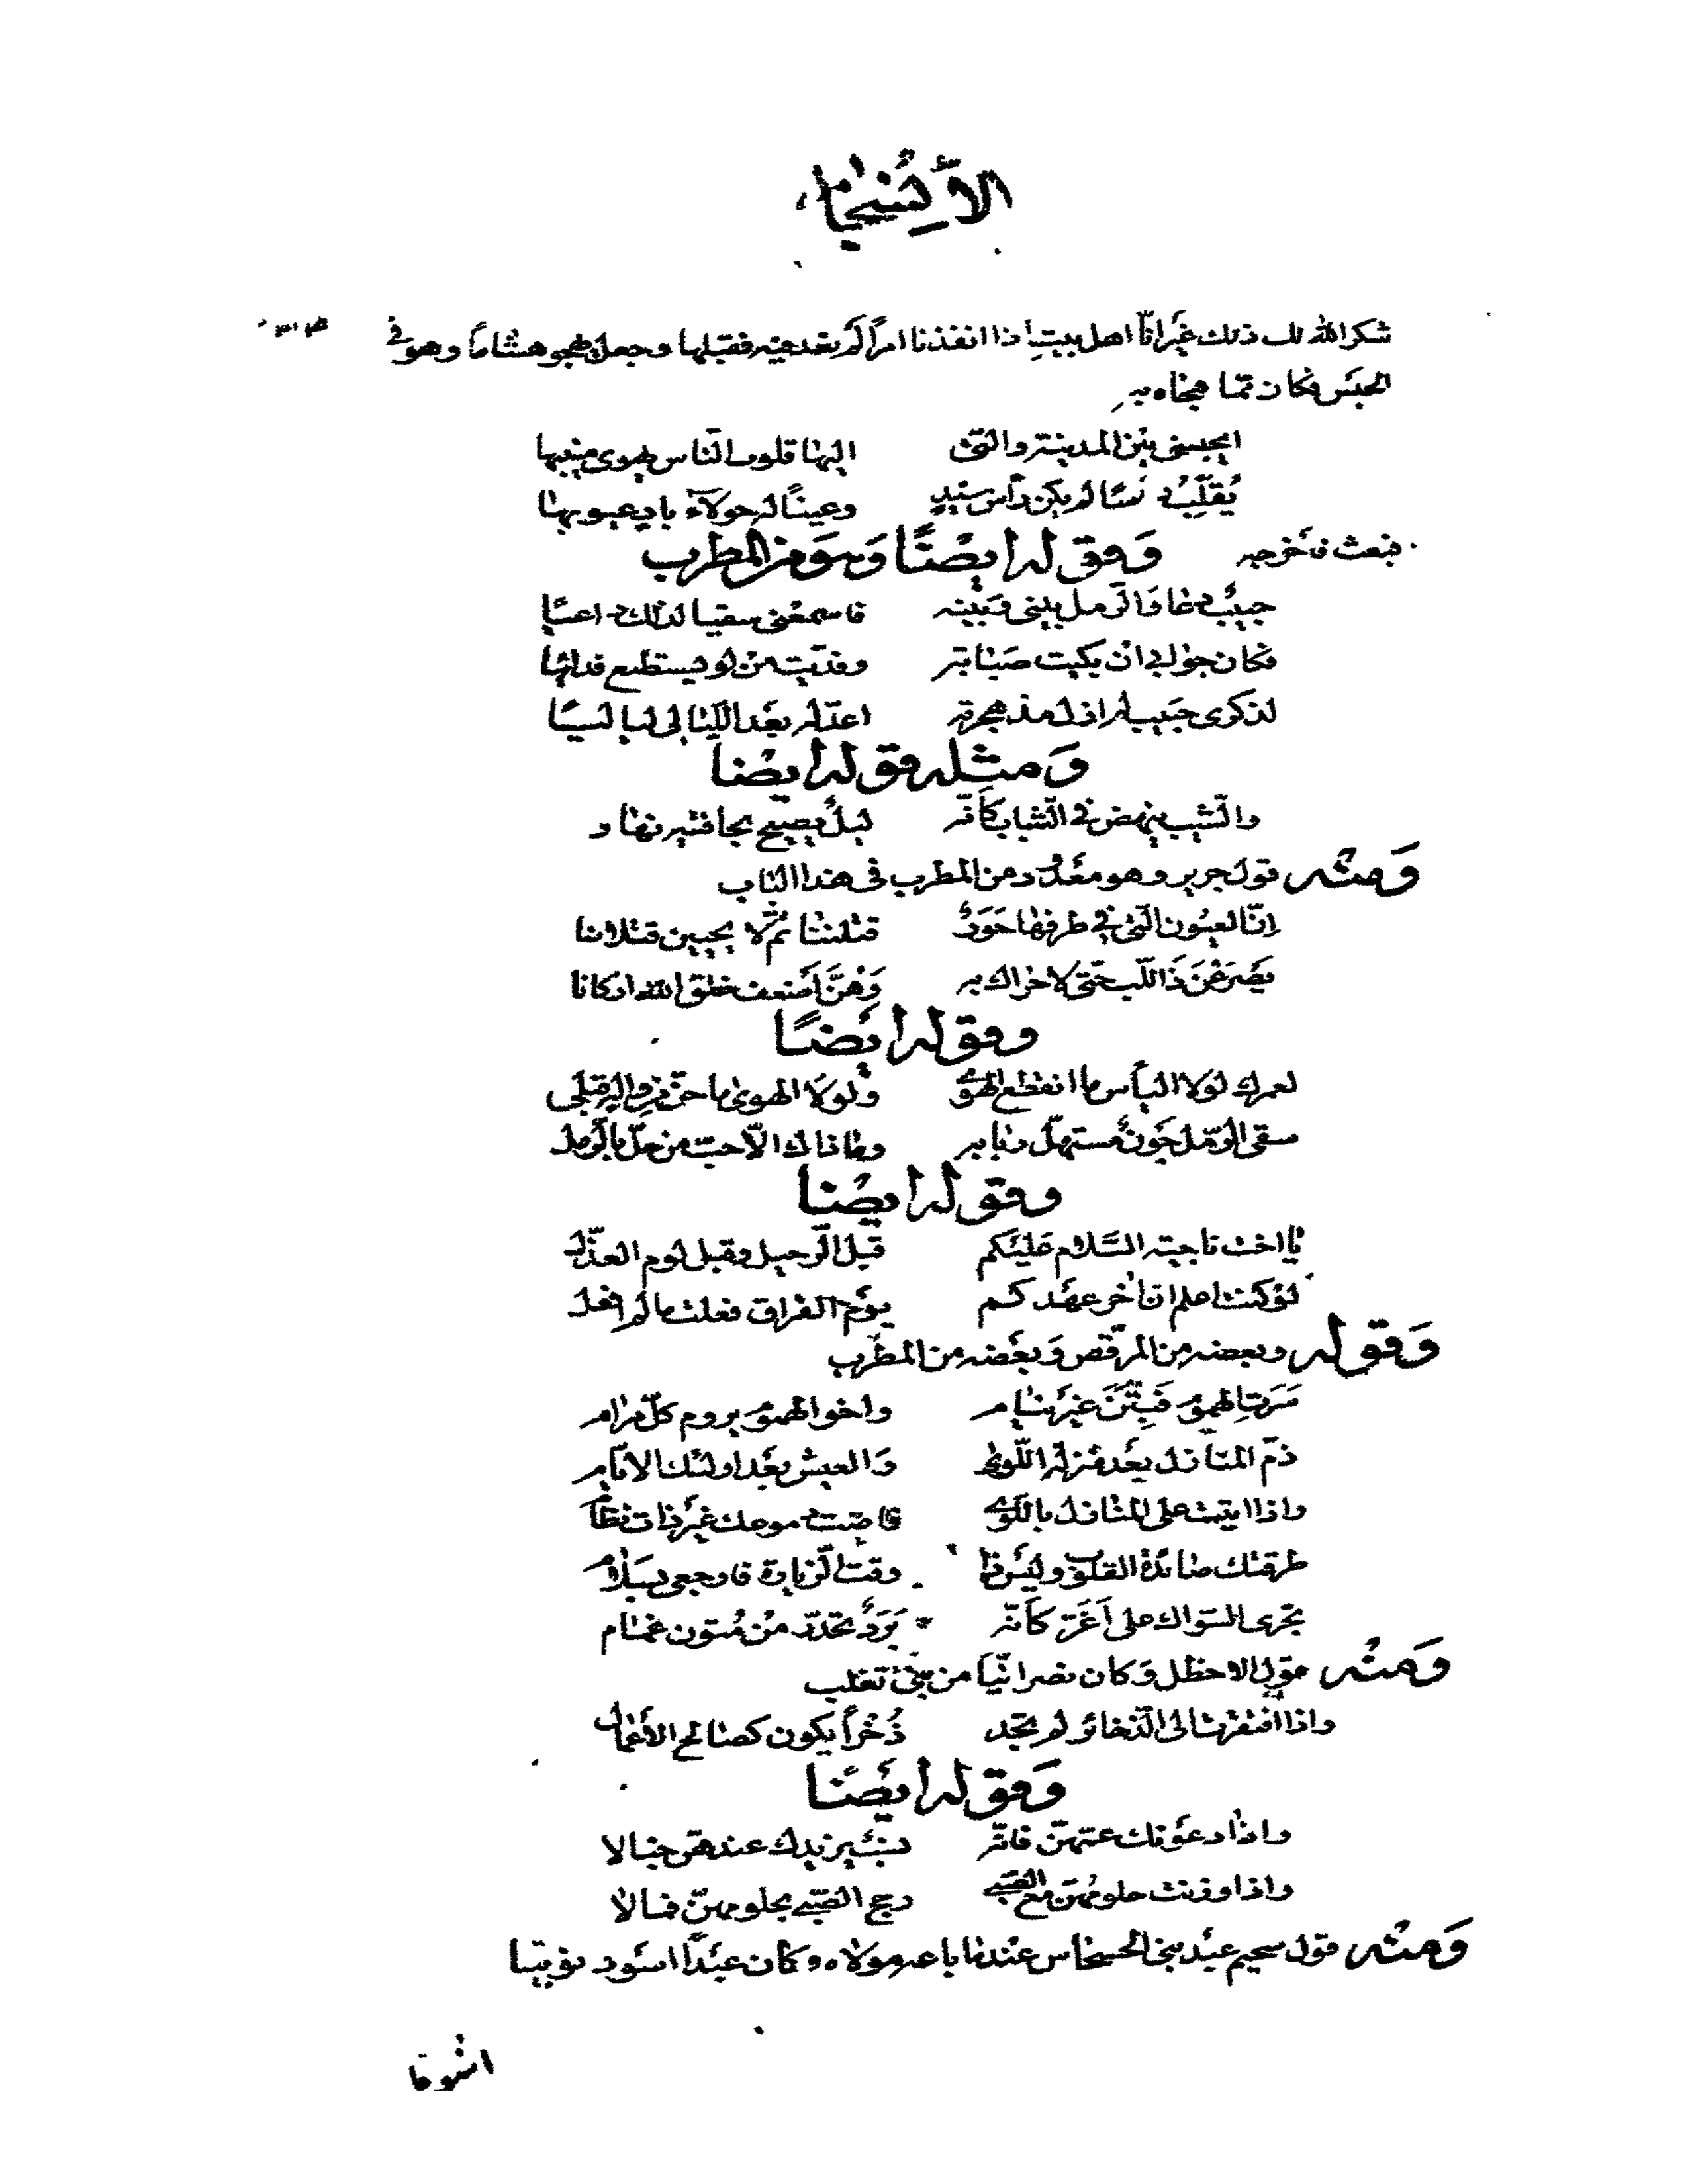 شكر الله لك ذلك غير انّا اهل بيت اذا انفذنا امراً لم نعد فيه فقبلها وجعل يهجو هشاماً وهو في
الحبس فكان ممّا هجاه به
ايحبسني بين المدينة والتي اليها قلوب النّاس يهوى منيبها
يُقلّب رأسًا لم يكن رأس سيّدٍ وعينًا له حولآء بادٍ عيوبها
فبعث فاخرجه وقوله ايضًا وهو من المطرب
حبيبٌ دعا والرّمل بيني وبينه فاسمعني سقيا لذلك داعيًا
فكان جوابي ان بكيت صبابة وفدّيته من لو يستطيع فدانيا
لذكرى حبيب لم ازل مذ هجرته اعدّ له بعد اللّيالي لياليًا
ومثله قوله ايضا
والشّيب ينهض في الشّباب كأنّه ليلٌ يصيح بجانبيه نهار
ومنه قول جرير وهو معدود من المطرب في هذا الباب
انّ العيون الّتي في طرفها حَوَرٌ قتلننا ثمّ لا يحيين قتلانا
يصرعن ذا اللّب حتّى لا حراك به وهنّ أضعف خلق الله اركانا
وقوله ايضًا
لعمرك لولا اليأس ما انقطع الهوى ولولا الهوى ما حنّ من واله قبلي
سقى الرّمل جونٌ مستهلّ ربابه وما ذاك الاّ حبّ من حلّ بالرّمل
وقوله ايضا
يا اخت ناجية السّلام عليكم قبل الرّحيل وقبل لوم العذّل
لو كنت اعلم انّ آخر عهدكم يوم الفراق فعلت ما لم افعل
وقوله وبعضه من المرقّص وبعضه من المطرب
سرت الهموم فبتن غير نيام واخو الهموم يروم كلّ مرام
ذمّ المنازل بعد منزلة اللّوى والعيش بعد اولئك الايّام
واذا اتيت على المنازل باللّوى فاضت دموعك غير ذات نظام
طرقتك صائدة القلوب وليس ذا وقت الزّيارة فارجعي بسلام
تجري السّواك على اغرّ كأنّه بَرَدٌ تحدّر من متون غمام
ومنه قول الاخطل وكان نصرانيّا من بني تغلب
واذا افتقرت الى الذّخائر لم تجد ذُخْراً يكون كصالح الأعمال
وقوله ايضًا
واذا دعونك عمّهنّ فانّه نسبٌ يزيدك عندهنّ خبالا
واذا وزنت حلومهنّ مع الصّبى رجح الصّبى بحلومهنّ فمالا
ومنه قول سحيم عبد بني الحسحاس عندما باعه مولاه وكان عبدًا اسود نوبيّا
اشوقا